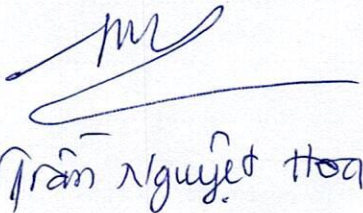 Trần Nguyệt Hoa